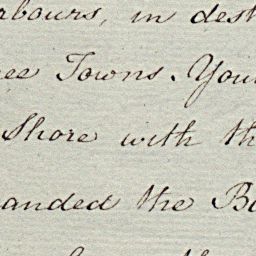 rbours, in dest
ee Towns. You
Shore with th
anded the B